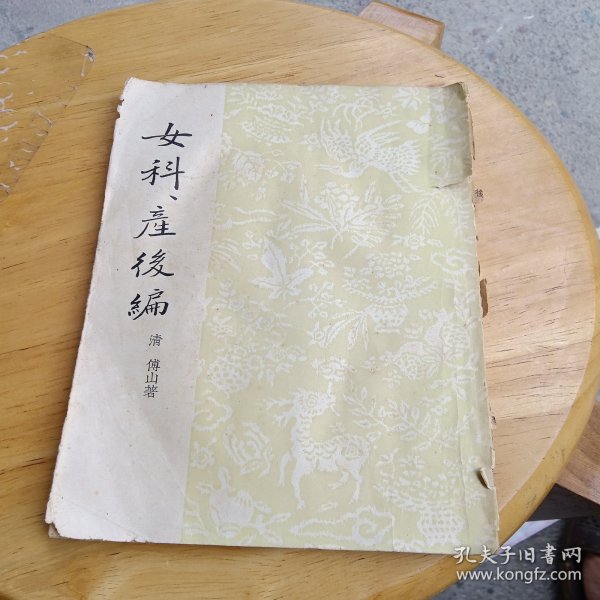 女科、產後編
清 傅山著
孔夫子旧書网
www.kongfz.com